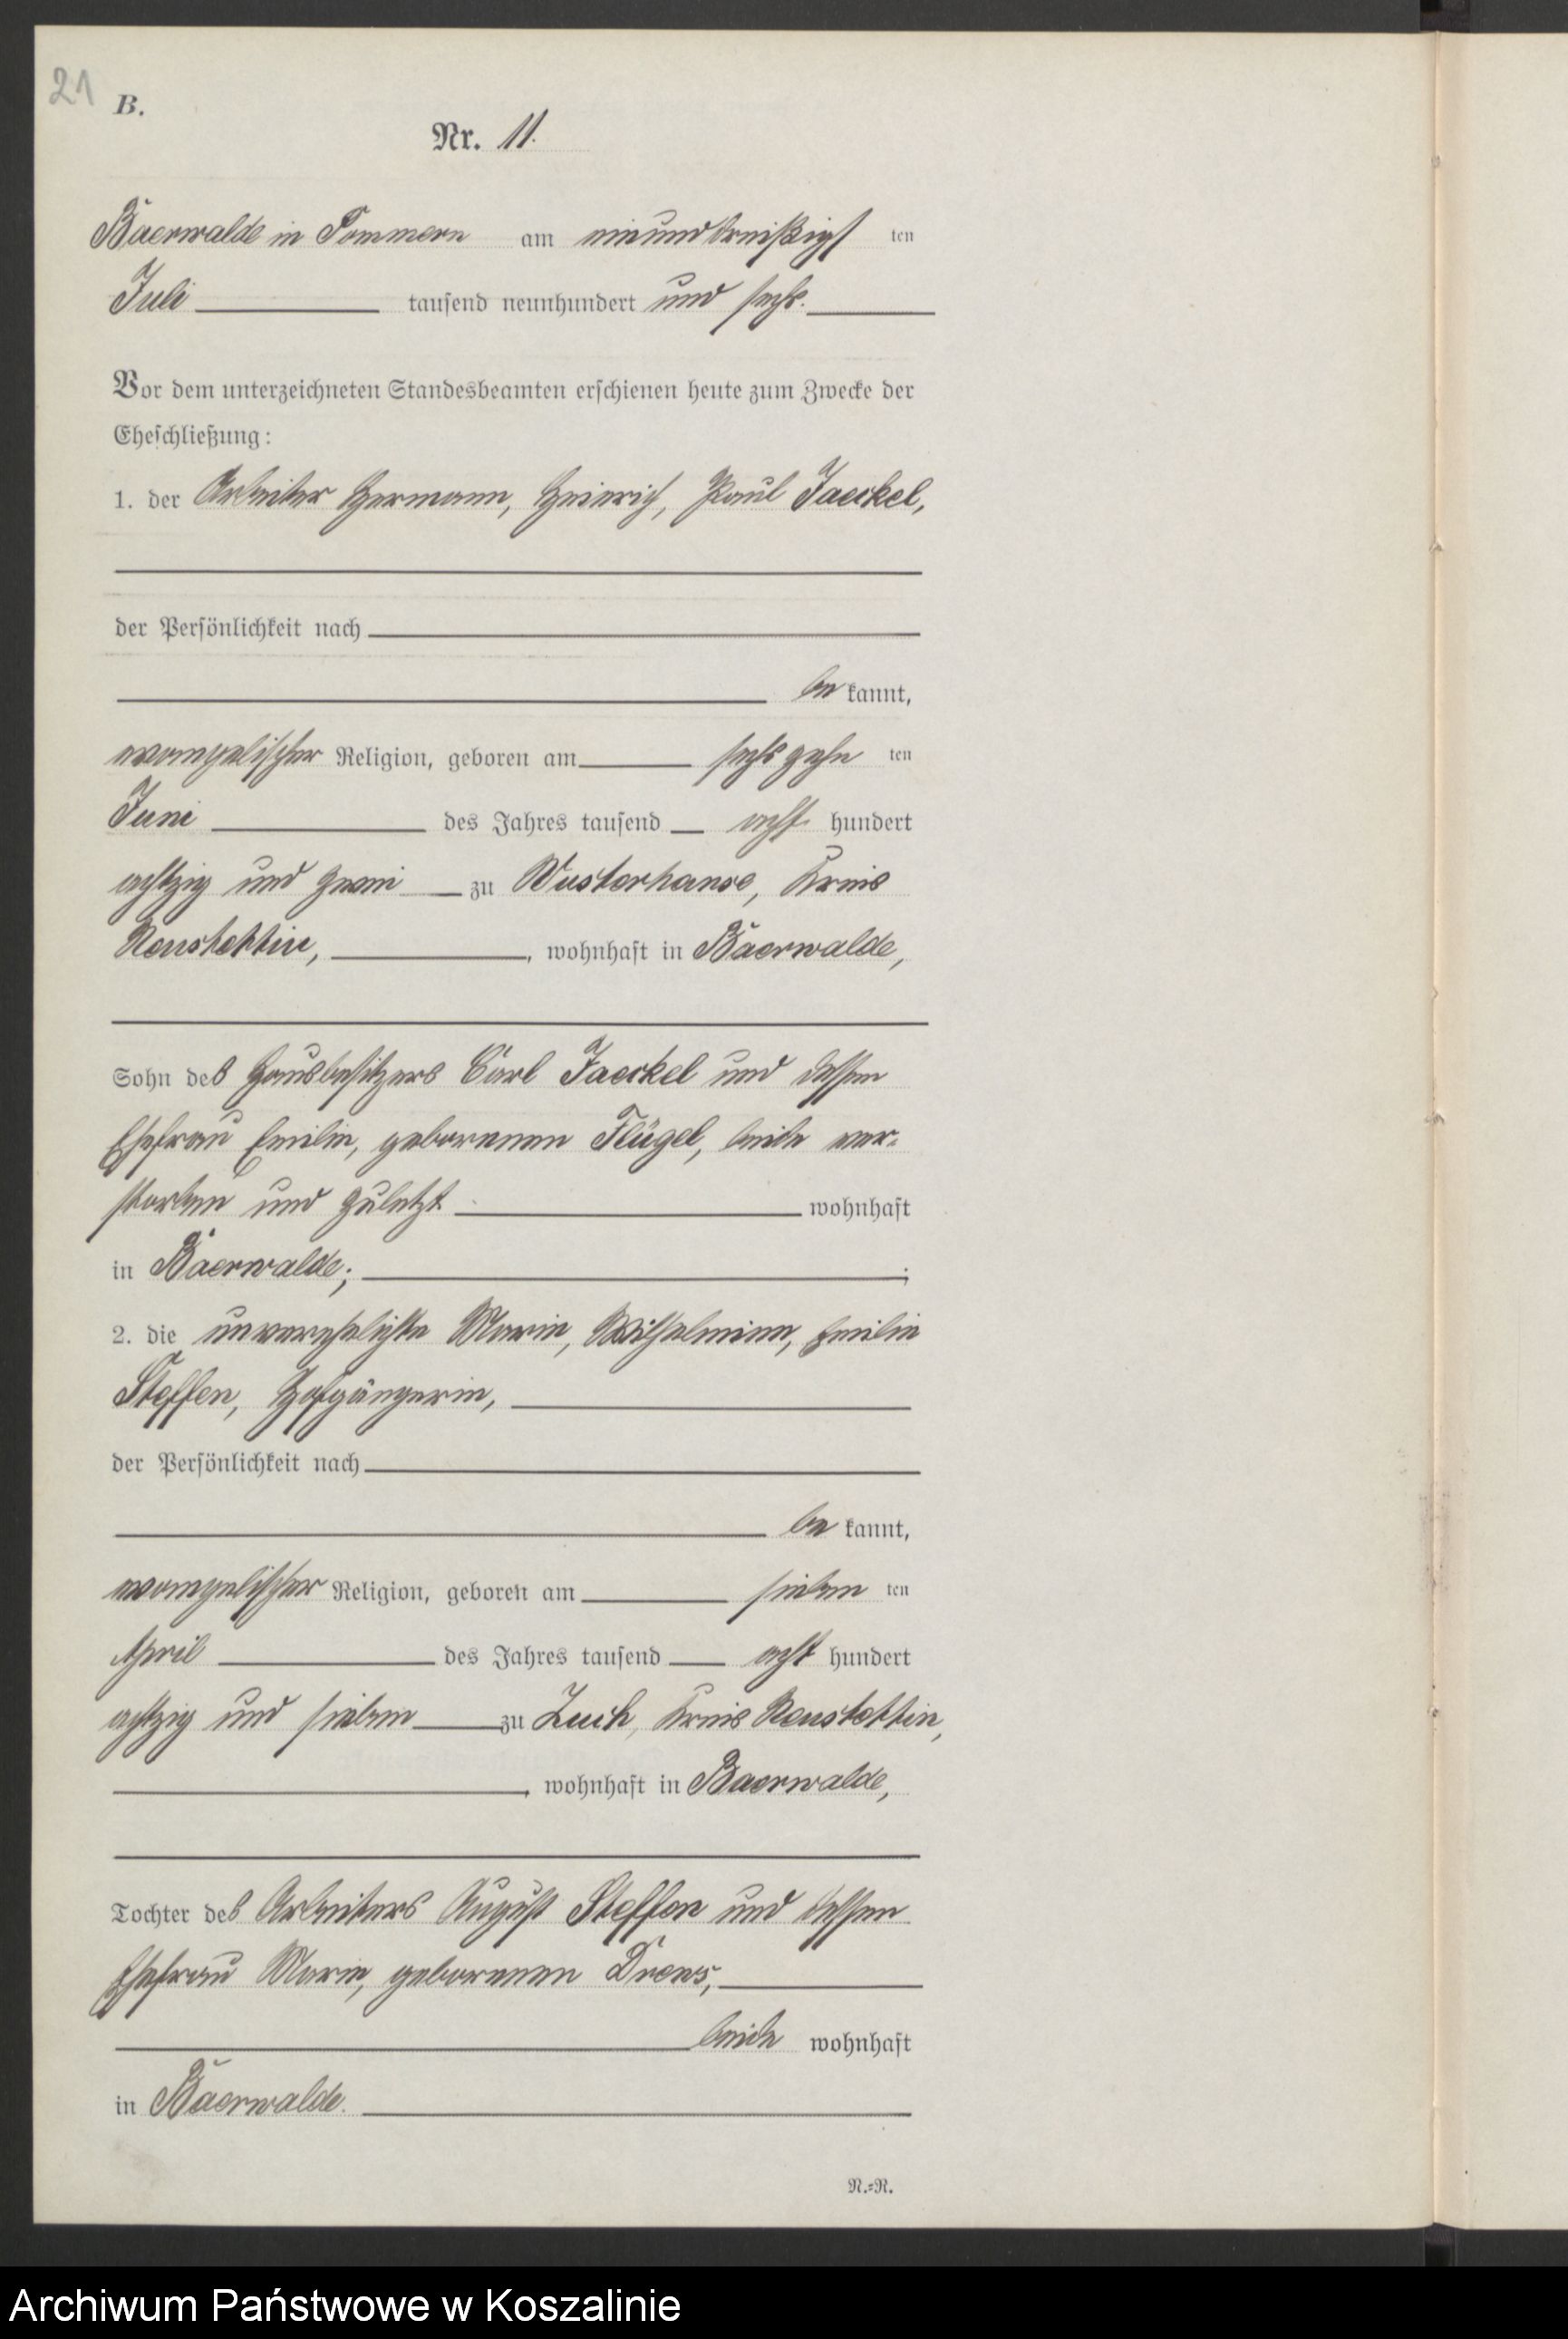 21
B.
Nr. 11.
Baerwalde in Pommern am einunddreißigsten
Juli tausend neunhundert und sechs.
Vor dem unterzeichneten Standesbeamten erschienen heute zum Zwecke der
Eheschließung:
1. der Arbeiter Hermann, Heinrich, Paul Jaeckel,
der Persönlichkeit nach
be kannt,
evangelischer Religion, geboren am sechszehn ten
Juni des Jahres tausend acht hundert
achtzig und zwei zu Wusterhanse, Kreis
Neustettin, , wohnhaft in Baerwalde,
Sohn des Hausbesitzers Carl Jaeckel und dessen
Ehefrau Emilie, geborenen Flügel, beide ver-
storben und zuletzt wohnhaft
in Baerwalde; ;
2. die unverehelichte Marie, Wilhelmine, Emilie
Steffen, Hofgängerin,
der Persönlichkeit nach
be kannt,
evangelischer Religion, geboren am sieben ten
April des Jahres tausend acht hundert
achtzig und sieben zu Zuch, Kreis Neustettin,
, wohnhaft in Baerwalde,
Tochter des Arbeiters August Steffen und dessen
Ehefrau Marie, geborenen Drews,
beide wohnhaft
in Baerwalde.
N.=N.
Archiwum Państwowe w Koszalinie